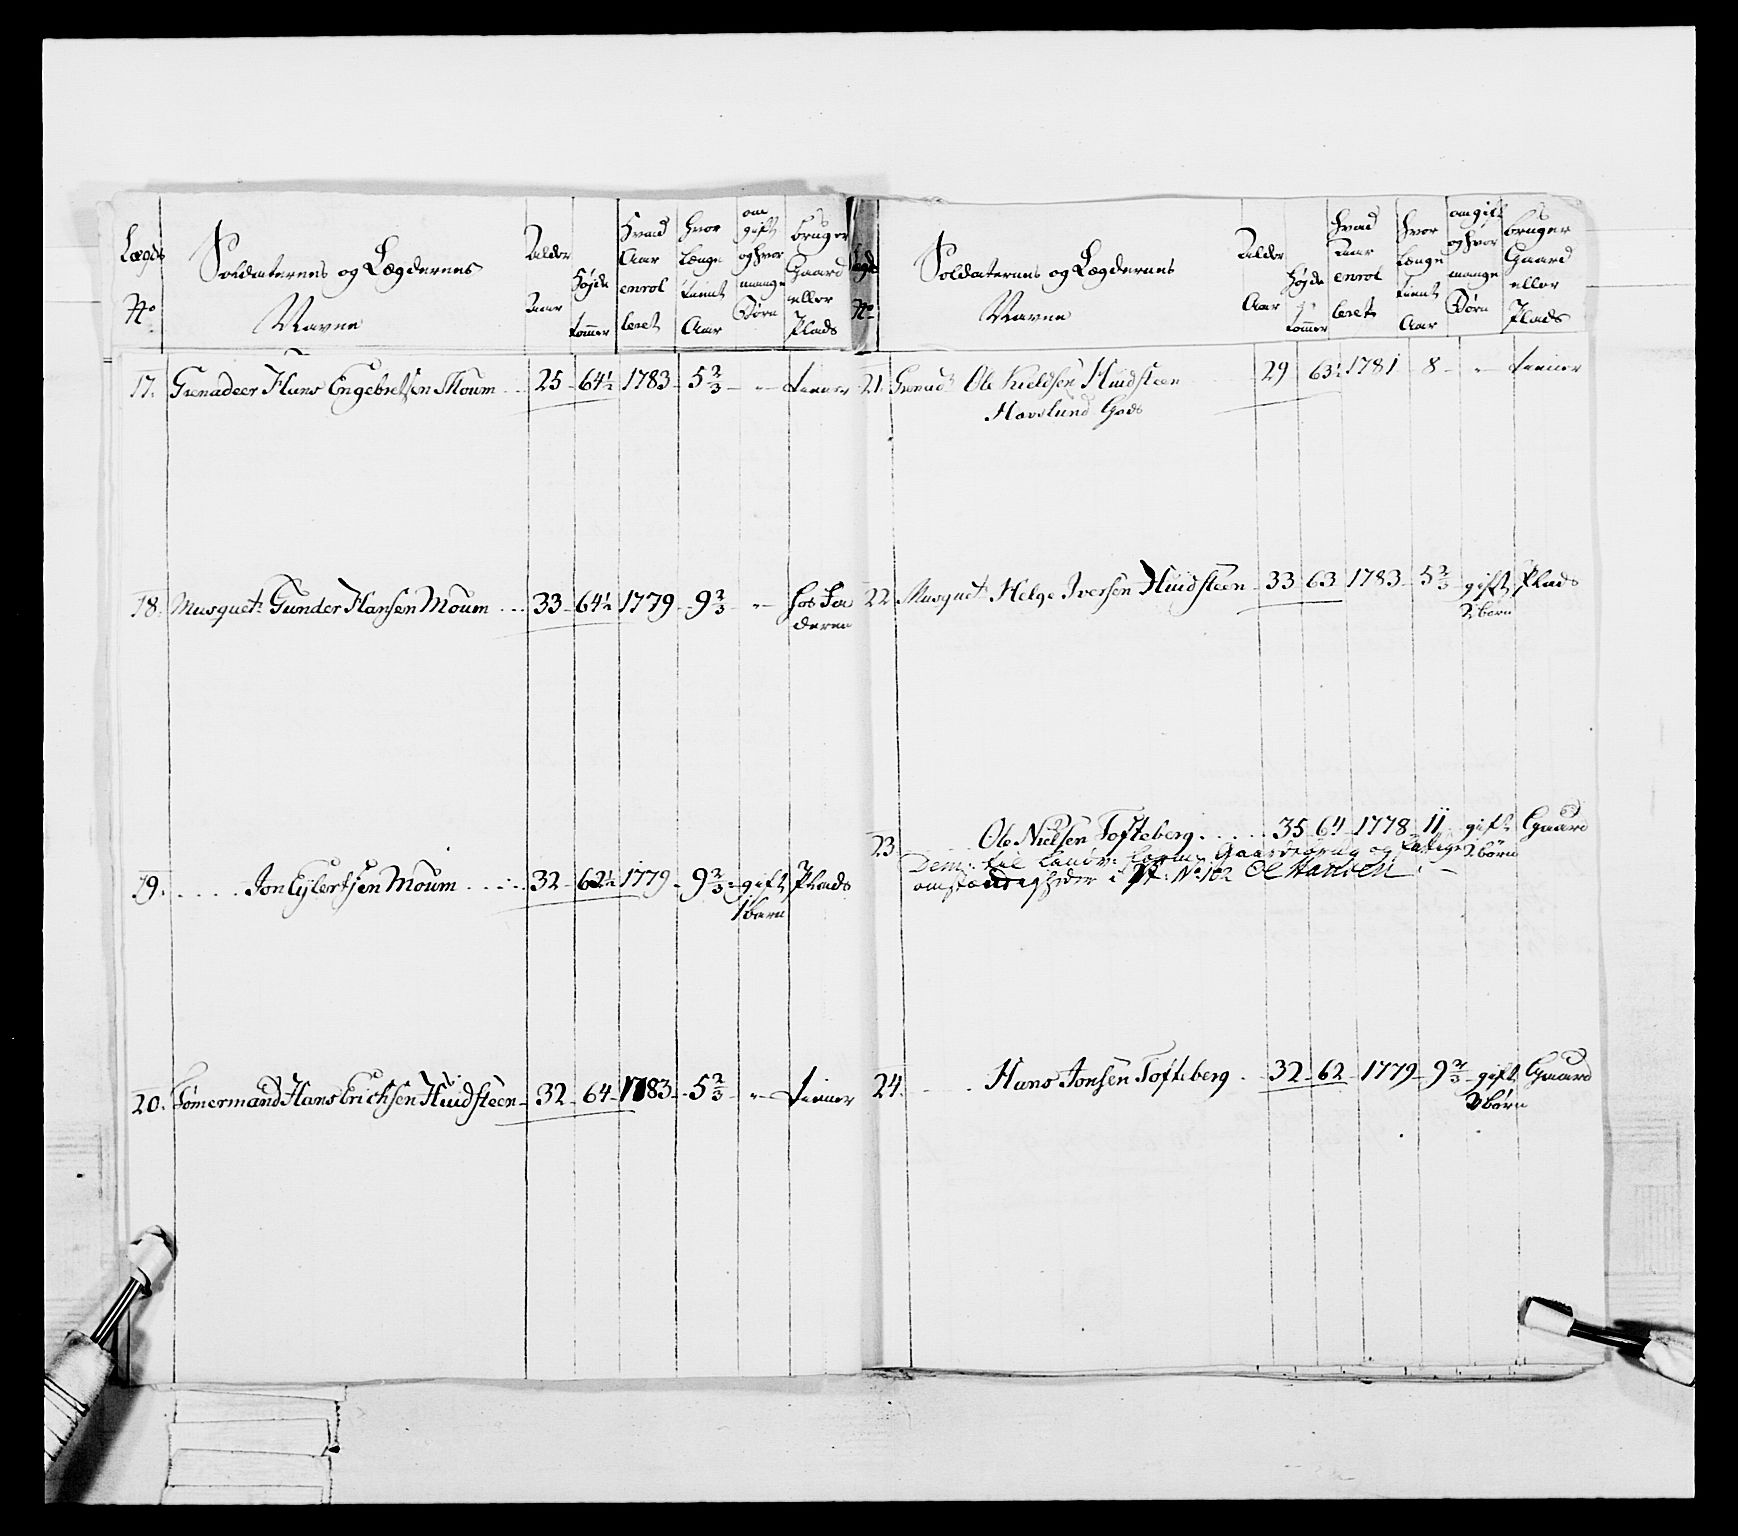 Lægds
No
Soldaternes og Lægdernes
Navne
Alder
Aar
Højde
tommer
Hvad
Aar
enrol
leret
Hvor
længe
tient
Aar
om
gift
og hvor
mange
Børn
bruger
Gaard
eller
Plads
17. Grenadeer Hans Engebretsen Moum 25 64½ 1783 5⅔ " tiener
18. Musquet: Gunder Hansen Moum 33 64½ 1779 9⅔ " hos Fa
deren
19. Jon Eylertsen Moum 32 62½ 1779 9⅔ gift Plads
1 barn
20. Tømermand Hans Erichsen Huidsteen 32 64 1783 5⅔ " tiener
Lægds
No
Soldaternes og Lægdernes
Navne
Alder
Aar
Højde
tommer
Hvad
Aar
enrol
leret
Hvor
længe
tient
Aar
om gift
og hvor
mange
Børn
bruger
Gaard
eller
Plads
21. Grenad: Ole Kieldsen Huidsteen 29 63½ 1781 8 " tiener
Havslund Gods
22. Musquet: Helge Iversen Huidsteen 33 63 1783 5⅔ gift Plads
2 børn
23. Ole Nielsen Tofteberg 35 64 1778 11 gift Gaard
2 børn
Dem: til Landv: form: Gaardebrug og
omstændigheder i St: No 102 Ole Hansen
24. Hans Jonsen Tofteberg 32 62 1779 9⅔ gift Gaard
3 børn